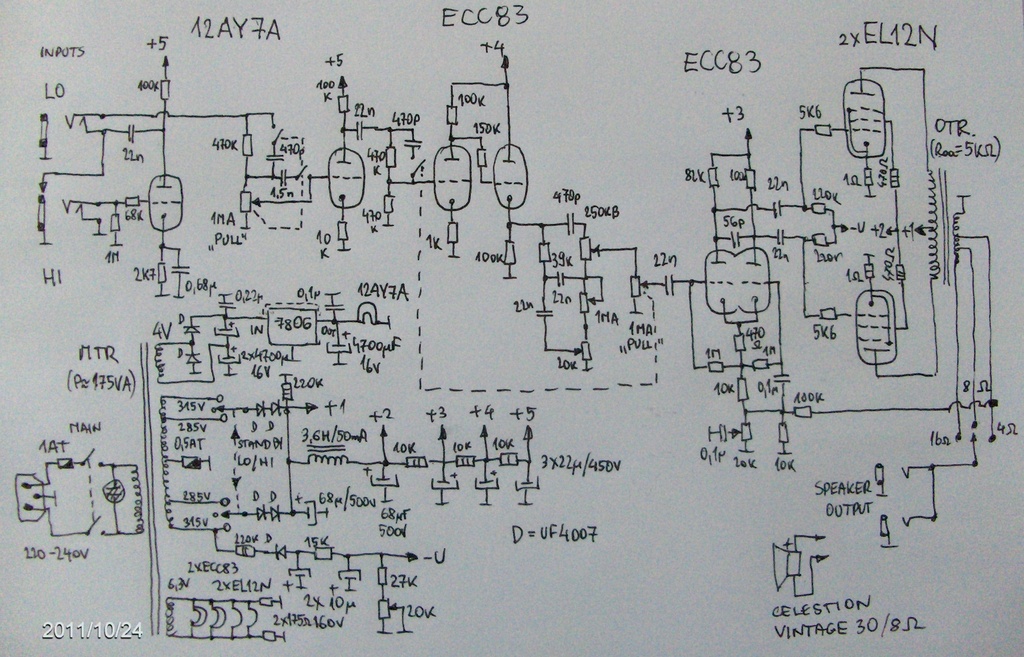 12AY7A
ECC83
ECC83
2xEL12N
INPUTS
LO
HI
+5
100K
22n
68K
1M
2K7
0,68µ
470K
470p
1,5n
1MA
"PULL"
+5
100
K
22n
470p
470
K
470
K
10
K
+4
100K
150K
1K
100K
470p
250KB
39K
22n
22n
1MA
20K
1MA
"PULL"
22n
+3
82K
100K
56p
22n
22n
470
Ω
1M
1M
10K
0,1µ
0,1µ
20K
10K
100K
5K6
5K6
220K
220K
-U
+2
+1
1Ω
470Ω
1Ω
470Ω
OTR.
(Raa=5KΩ)
16Ω
8Ω
4Ω
SPEAKER
OUTPUT
CELESTION
VINTAGE 30/8Ω
MTR
(P≈175VA)
4V
D
D
0,22µ
2x4700µ
16V
IN
7806
OUT
0,1µ
4700µF
16V
12AY7A
220K
315V
285V
0,5AT
285V
315V
D D
STANDBY
LO/HI
D D
+1
3,6H/50mA
68µ/500V
+2
68µF
500V
10K
+3
10K
+4
10K
+5
3x22µ/450V
D=UF4007
220K
D
15K
-U
2x
10µ
160V
27K
20K
6,3V
2xECC83
2xEL12N
2x175Ω
MAIN
1AT
220-240V
2011/10/24